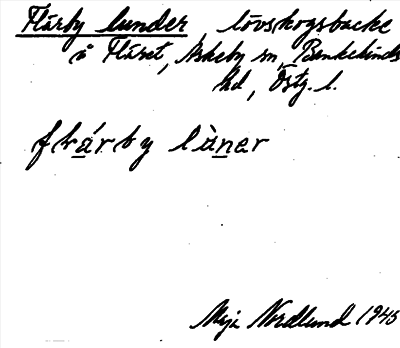 Flärby lunder, lövskogsbacke
å Fläret, Askeby sn, Bankekinds
hd, Östg. l.
flä́rby lùner
Maja Nordlund 1945